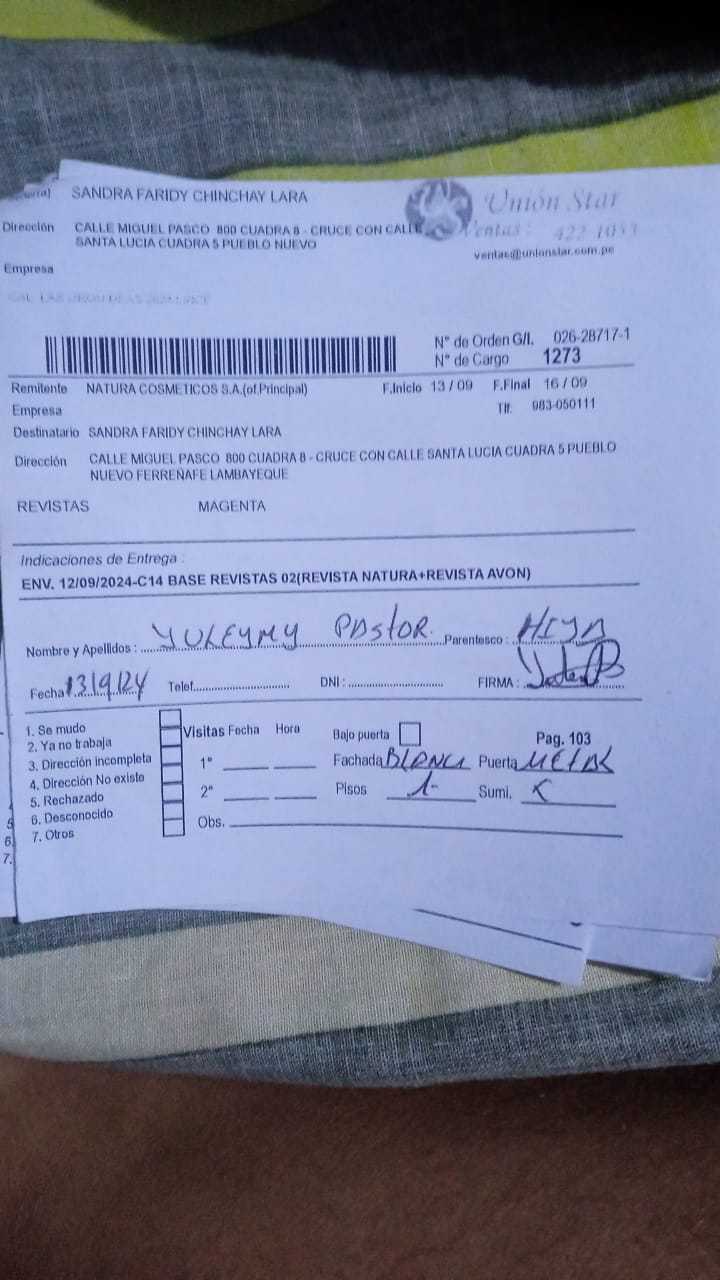 SANDRA FARIDY CHINCHAY LARA
Unión Star
Dirección CALLE MIGUEL PASCO 800 CUADRA 8 - CRUCE CON CALLE
SANTA LUCIA CUADRA 5 PUEBLO NUEVO
Ventas:
ventas@unionstar.com.pe
Empresa
N° de Orden G/I. 026-28717-1
N° de Cargo 1273
Remitente NATURA COSMETICOS S.A.(of.Principal) F.Inicio 13 / 09 F.Final 16 / 09
Empresa Tlf. 983-050111
Destinatario SANDRA FARIDY CHINCHAY LARA
Dirección CALLE MIGUEL PASCO 800 CUADRA 8 - CRUCE CON CALLE SANTA LUCIA CUADRA 5 PUEBLO
NUEVO FERREÑAFE LAMBAYEQUE
REVISTAS MAGENTA
Indicaciones de Entrega :
ENV. 12/09/2024-C14 BASE REVISTAS 02(REVISTA NATURA+REVISTA AVON)
Nombre y Apellidos : YULEYMY PASTOR. Parentesco : HIJA
Fecha 13/9/24 Telef. DNI : FIRMA :
1. Se mudo
2. Ya no trabaja
3. Dirección incompleta
4. Dirección No existe
5. Rechazado
6. Desconocido
7. Otros
Visitas Fecha Hora Bajo puerta Pag. 103
1° Fachada BLANCA Puerta METAL
2° Pisos 1 Sumi.
Obs.
5
6.
7.